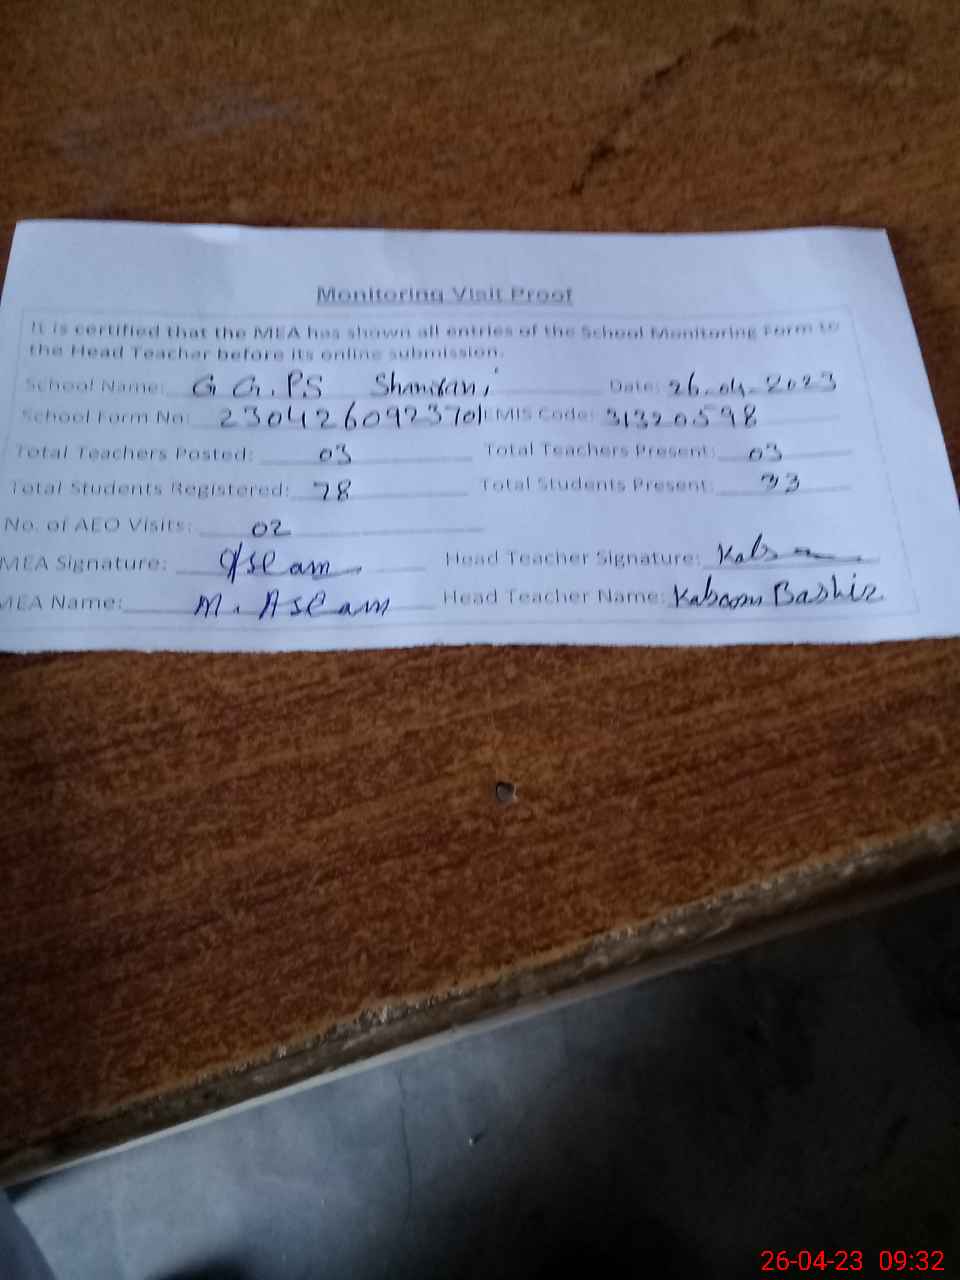 Monitoring Visit Proof
It is certified that the MEA has shown all entries of the School Monitoring Form to
the Head Teacher before its online submission.
School Name: G G.PS Date: 26-04-2023
School Form No: 2304260923701 EMIS Code: 31320598
Total Teachers Posted: 03 Total Teachers Present: 03
Total Students Registered: 78 Total Students Present: 33
No. of AEO Visits: 02
MEA Signature: Aslam Head Teacher Signature:
MEA Name: M. Aslam Head Teacher Name: Bashir
26-04-23 09:32